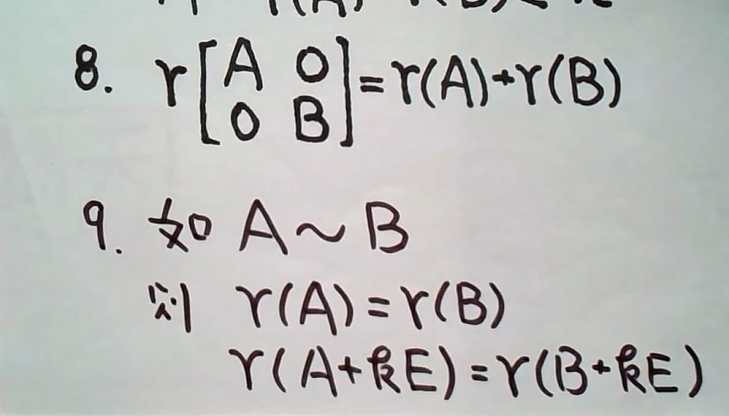 8. r[A 0
0 B]=r(A)+r(B)
9. 如 A~B
则 r(A)=r(B)
r(A+kE)=r(B+kE)